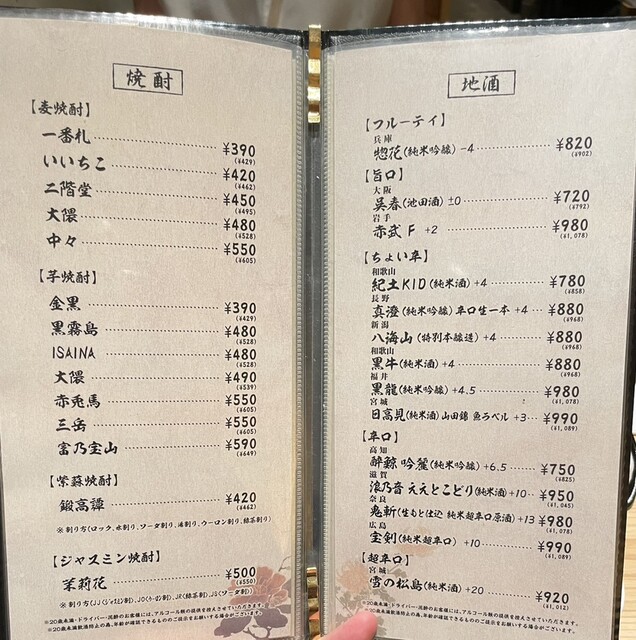 焼酎
【麦焼酎】
一番札 ¥390 (¥429)
いいちこ ¥420 (¥462)
二階堂 ¥450 (¥495)
大隈 ¥480 (¥528)
中々 ¥550 (¥605)
【芋焼酎】
金黒 ¥390 (¥429)
黒霧島 ¥480 (¥528)
ISAINA ¥480 (¥528)
大隈 ¥490 (¥539)
赤兎馬 ¥550 (¥605)
三岳 ¥550 (¥605)
富乃宝山 ¥590 (¥649)
【紫蘇焼酎】
鍛高譚 ¥420 (¥462)
※割り方(ロック、水割り、ソーダ割り、湯割り、ウーロン割り、緑茶割り)
【ジャスミン焼酎】
茉莉花 ¥500 (¥550)
※割り方(JJ(ジャスミン割り)、JO(ウーロン割り)、JR(緑茶割り)、JS(ソーダ割り))
※20歳未満・ドライバー・泥酔のお客様には、アルコール類の提供を控えさせていただきます。
※20歳未満飲酒防止の為、年齢が確認できるもののご提示をお願いする場合がございます。
地酒
【フルーティ】
兵庫
惣花(純米吟醸) -4 ¥820 (¥902)
【旨口】
大阪
呉春(池田酒) ±0 ¥720 (¥792)
岩手
赤武 F +2 ¥980 (¥1,078)
【ちょい辛】
和歌山
紀土KID(純米酒) +4 ¥780 (¥858)
長野
真澄(純米吟醸) 辛口生一本 +4 ¥880 (¥968)
新潟
八海山(特別本醸造) +4 ¥880 (¥968)
和歌山
黒牛(純米酒) +4 ¥880 (¥968)
福井
黒龍(純米吟醸) +4.5 ¥980 (¥1,078)
宮城
日高見(純米酒) 山田錦 魚ラベル +3 ¥990 (¥1,089)
【辛口】
高知
酔鯨 吟麗(純米吟醸) +6.5 ¥750 (¥825)
滋賀
浪乃音 ええとこどり(純米酒) +10 ¥950 (¥1,045)
奈良
鬼斬(生もと仕込 純米超辛口原酒) +13 ¥980 (¥1,078)
広島
宝剣(純米超辛口) +10 ¥990 (¥1,089)
【超辛口】
宮城
雪の松島(純米酒) +20 ¥920 (¥1,012)
※20歳未満・ドライバー・泥酔のお客様には、アルコール類の提供を控えさせていただきます。
※20歳未満飲酒防止の為、年齢が確認できるもののご提示をお願いする場合がございます。